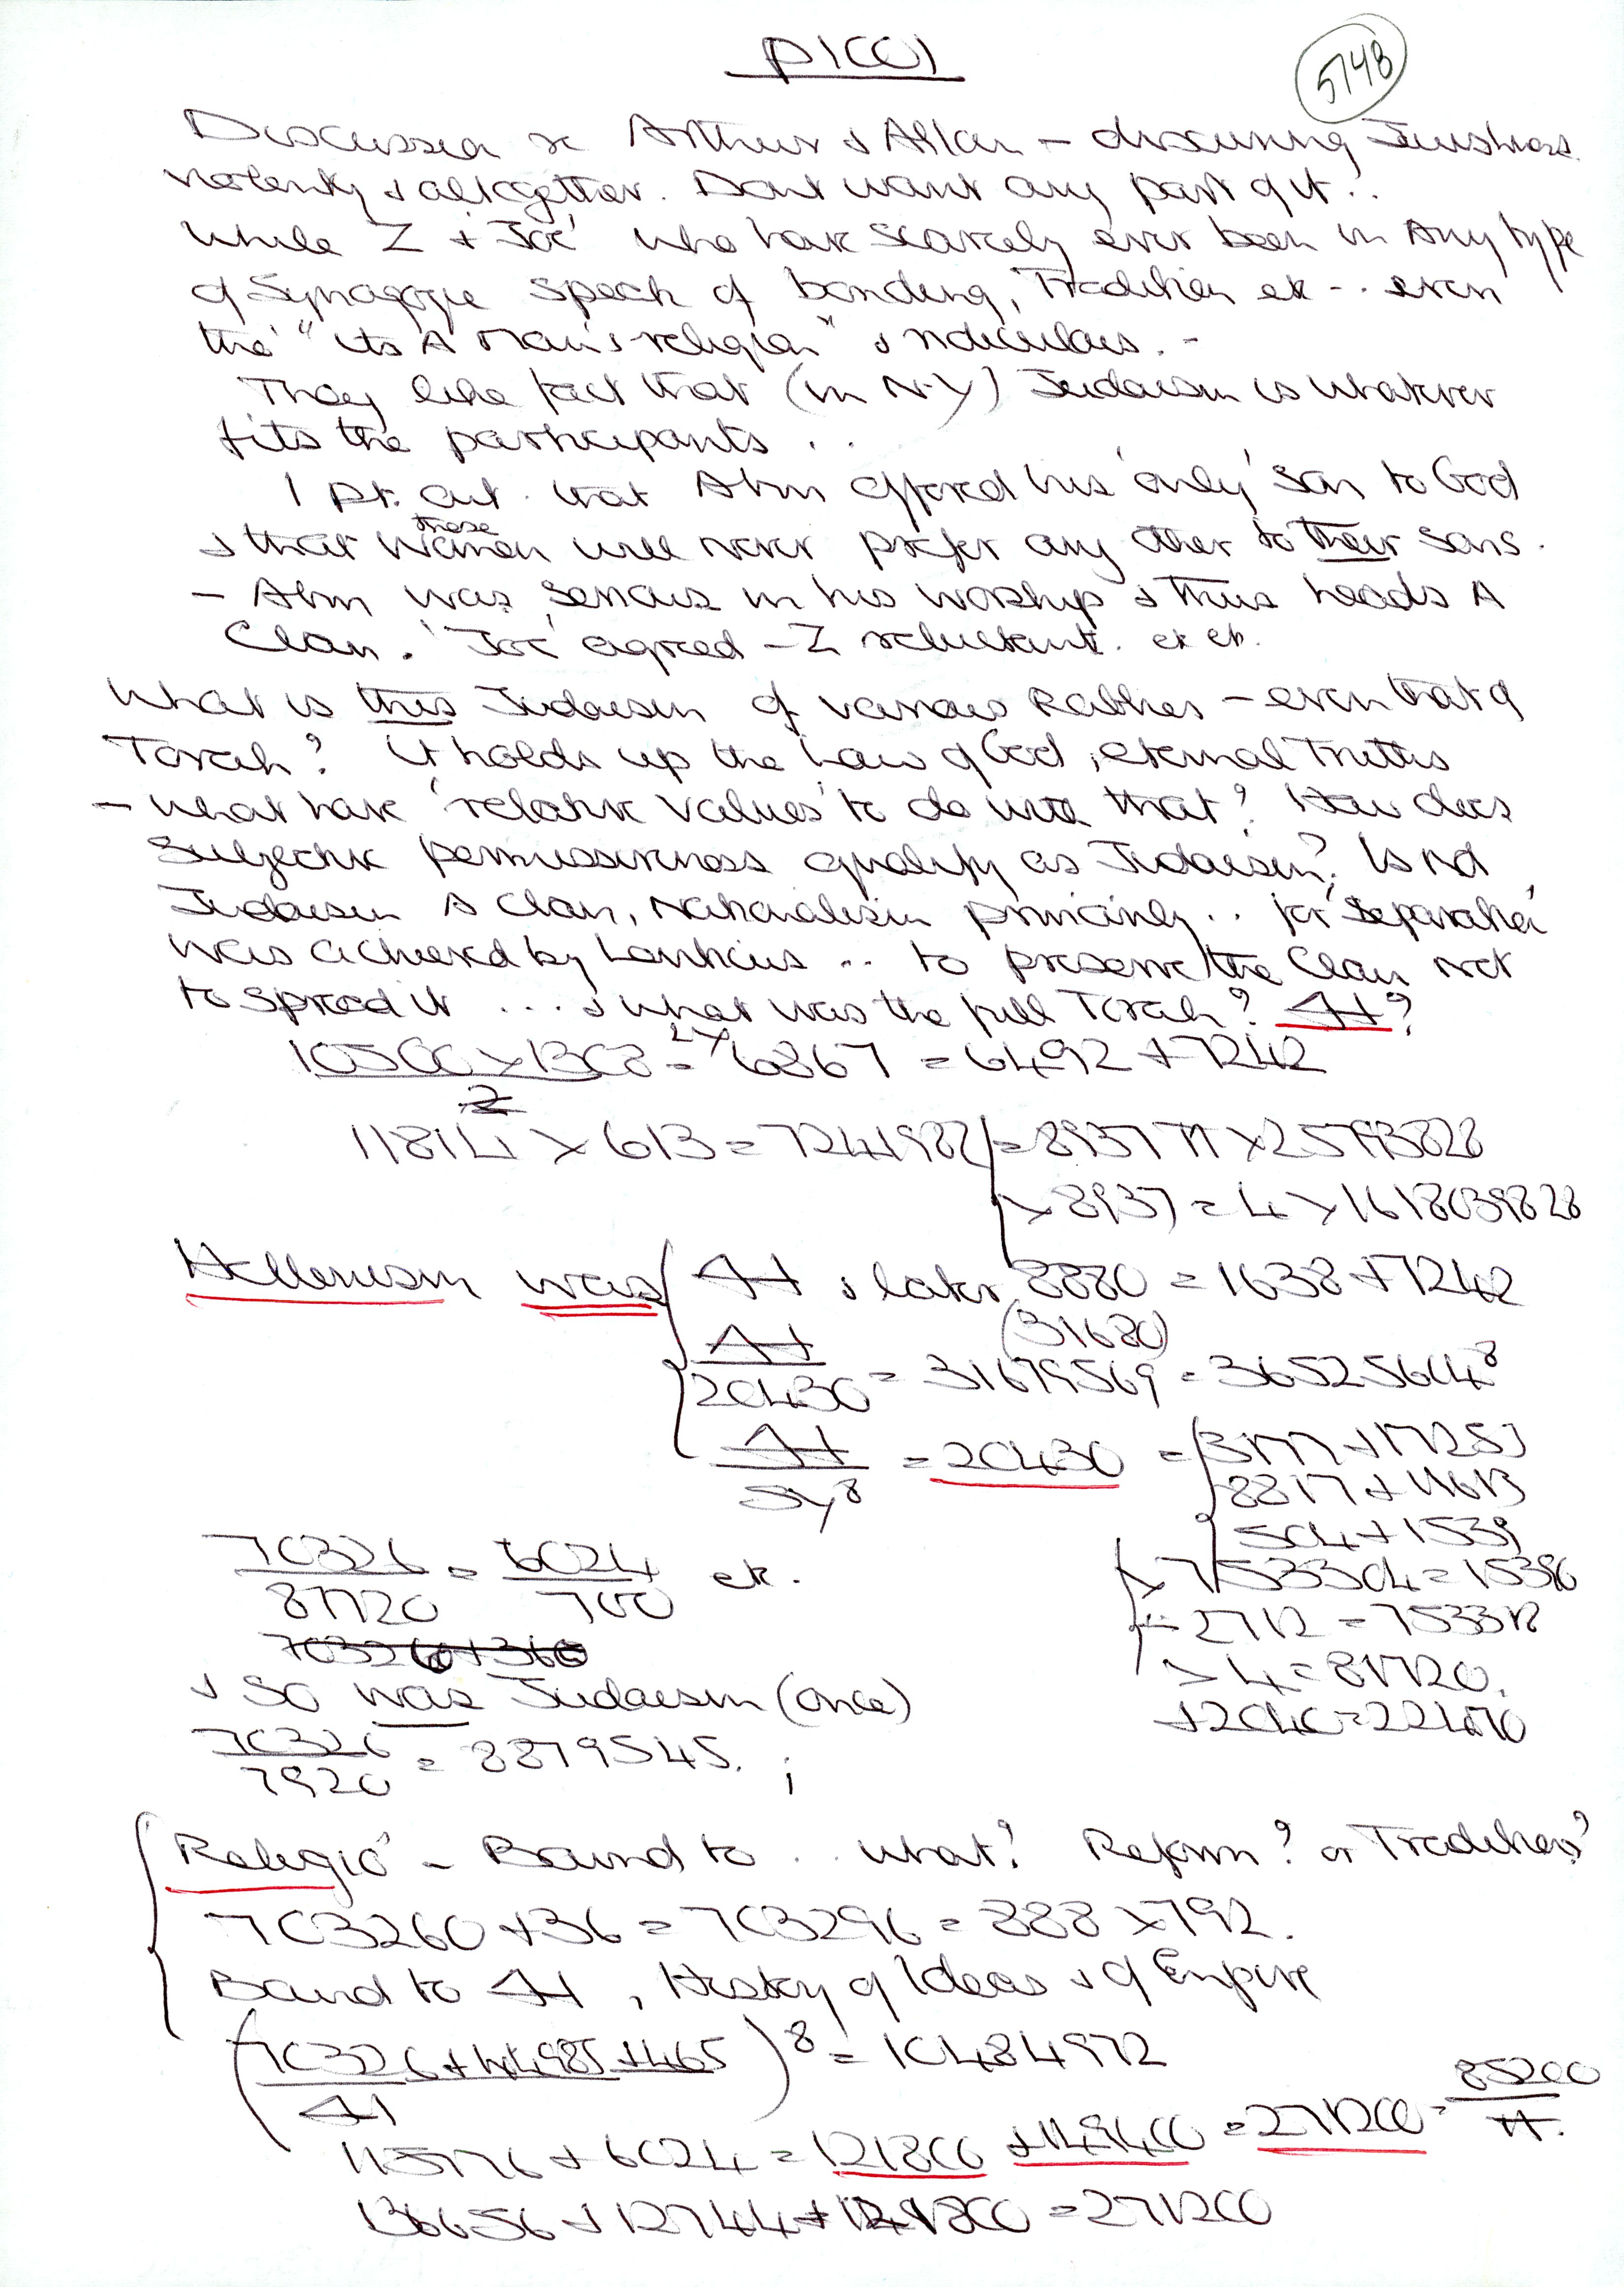 5748
Discussion re Arthur & Allan - discussing Jewishness
violently & altogether. Dont want any part of it!.
While Z + 'Joe' who have scarcely ever been in Any type
of Synagogue speak of bonding, Tradition etc -.. even
the "its A Man's religion" & ridiculous. -
They like fact that (in N.Y) Judaism is whatever
fits the participants ..
I pt. out. that Abm offered his 'only' son to God
& that these women will never prefer any other to their sons.
- Abm was serious in his worship & thus heads A
Clan. 'Joe' agreed - Z reluctant. etc etc.
What is this Judaism of various Rabbies - even that of
Torah? It holds up the Law of God, eternal Truths
- what have 'relative values' to do with that? How does
Subjective permissiveness qualify as Judaism? Is not
Judaism A Clan, Nationalism primarily .. for 'separation'
was achieved by Leviticus ... to preserve the Clan not
to spread it .... & what was the full Torah? ?
10500 x 1308 = 6867 = 6492 + 7242
2
x 613 = = x
x 8937 = 4 x 1618039828
Hellenism was & later 8880 = 1638 + 7242
(31680)
20430 = 31679569 = 365256048
= 20430 = 3177 + 17253
8817 + 11613
504 + 1539
70326 = 6024 etc.
87720 700
x 7533304 = 15390
÷ 2712 = 753312
x 4 = 81720.
+ 2040 = 22470
& so was Judaism (once)
70326 = 8879545. ;
7920
Religio' - Bound to .. what? Reform? or Tradition?
703260 + 36 = 703296 = 888 x 792.
Bound to , History of Ideas & of Empire
(70326 + + 465)8 = 10484972
115776 + 6024 = 121800 + 149400 = 271200 = 85200
136656 + 12744 + 121800 = 271200